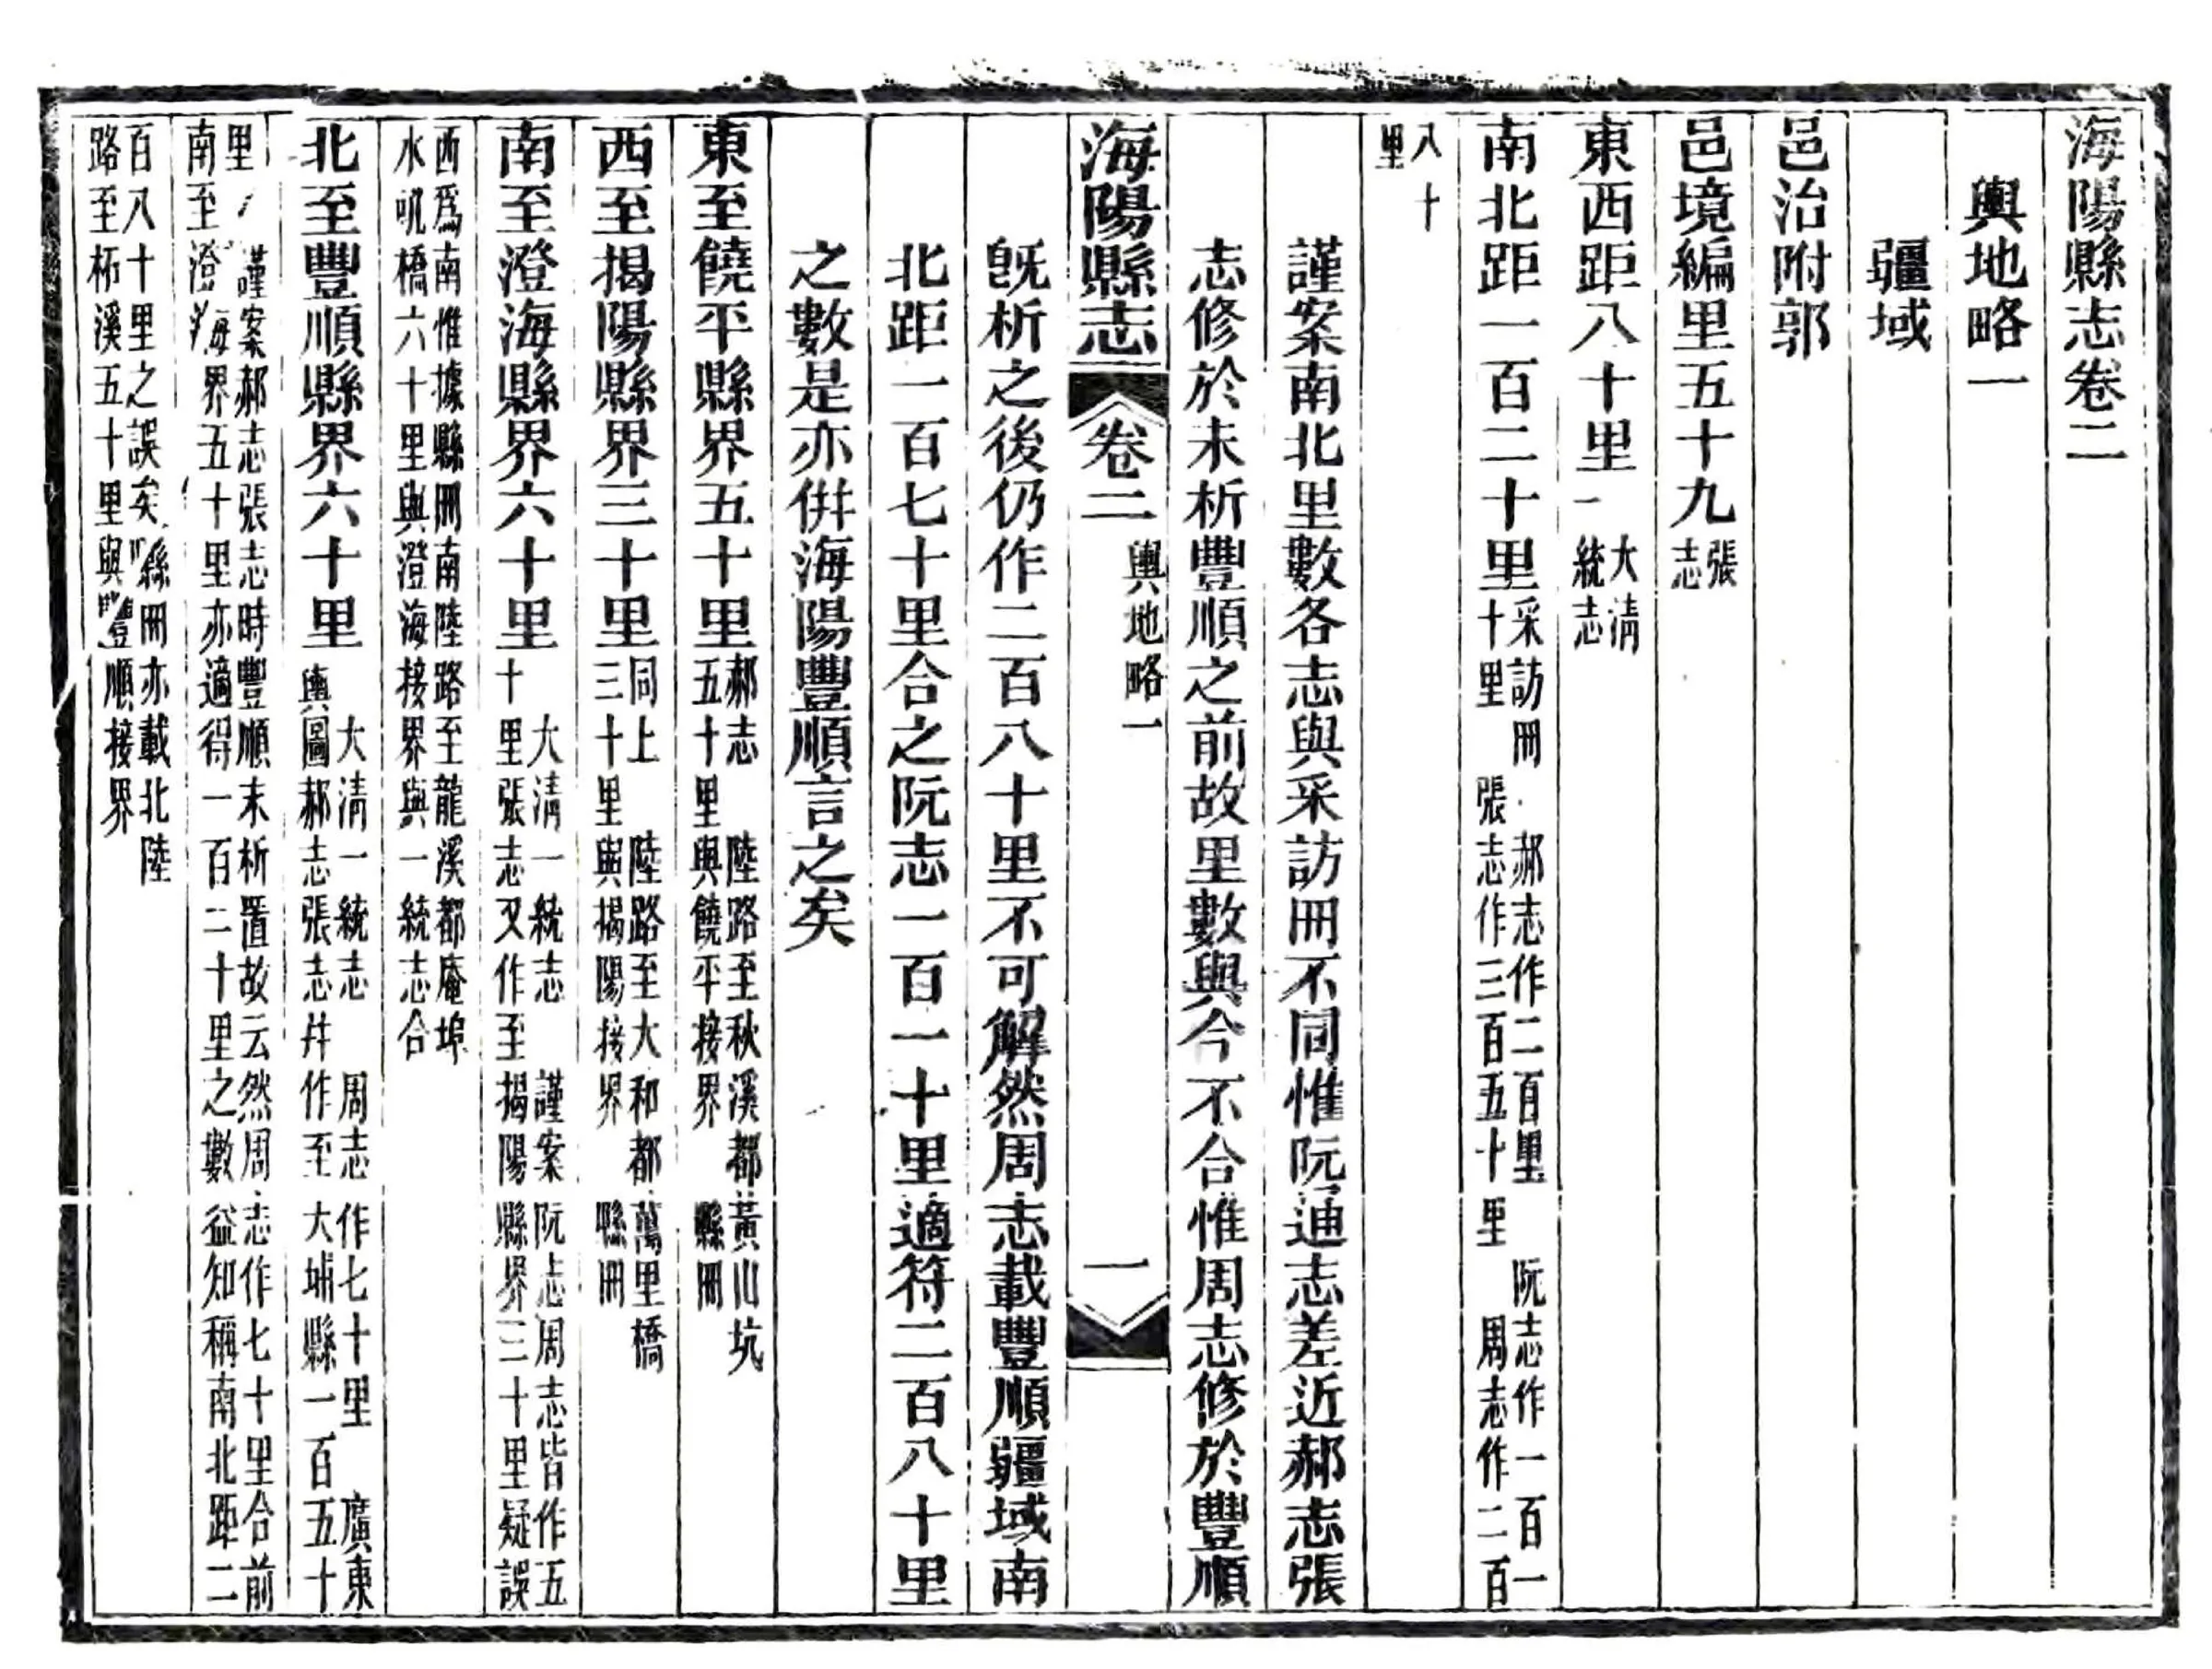 海陽縣志卷二
輿地略一
疆域
邑治附郭
邑境編里五十九張志
東西距八十里大清一統志
南北距一百二十里采訪冊 郝志作二百里 阮志作一百一十里 張志作三百五十里 周志作二百
八十里
謹案南北里數各志與采訪冊不同惟阮通志差近郝志張
志修於未析豐順之前故里數與今不合惟周志修於豐順
海陽縣志 卷二 輿地略一 一
旣析之後仍作二百八十里不可解然周志載豐順疆域南
北距一百七十里合之阮志一百一十里適符二百八十里
之數是亦併海陽豐順言之矣
東至饒平縣界五十里郝志 陸路至秋溪都黃山坑五十里與饒平接界 縣冊
西至揭陽縣界三十里同上 陸路至大和都萬里橋三十里與揭陽接界 縣冊
南至澄海縣界六十里大清一統志 謹案阮志周志皆作五十里張志又作至揭陽縣界三十里疑誤
西爲南惟據縣冊南陸路至龍溪都庵埠水吼橋六十里與澄海接界與一統志合
北至豐順縣界六十里大清一統志 周志作七十里 廣東輿圖郝志張志幷作至大埔縣一百五十
里 謹案郝志張志時豐順未析置故云然周志作七十里合前南至澄海界五十里亦適得一百二十里之數益知稱南北距二
百八十里之誤矣縣冊亦載北陸路至柘溪五十里與豐順接界